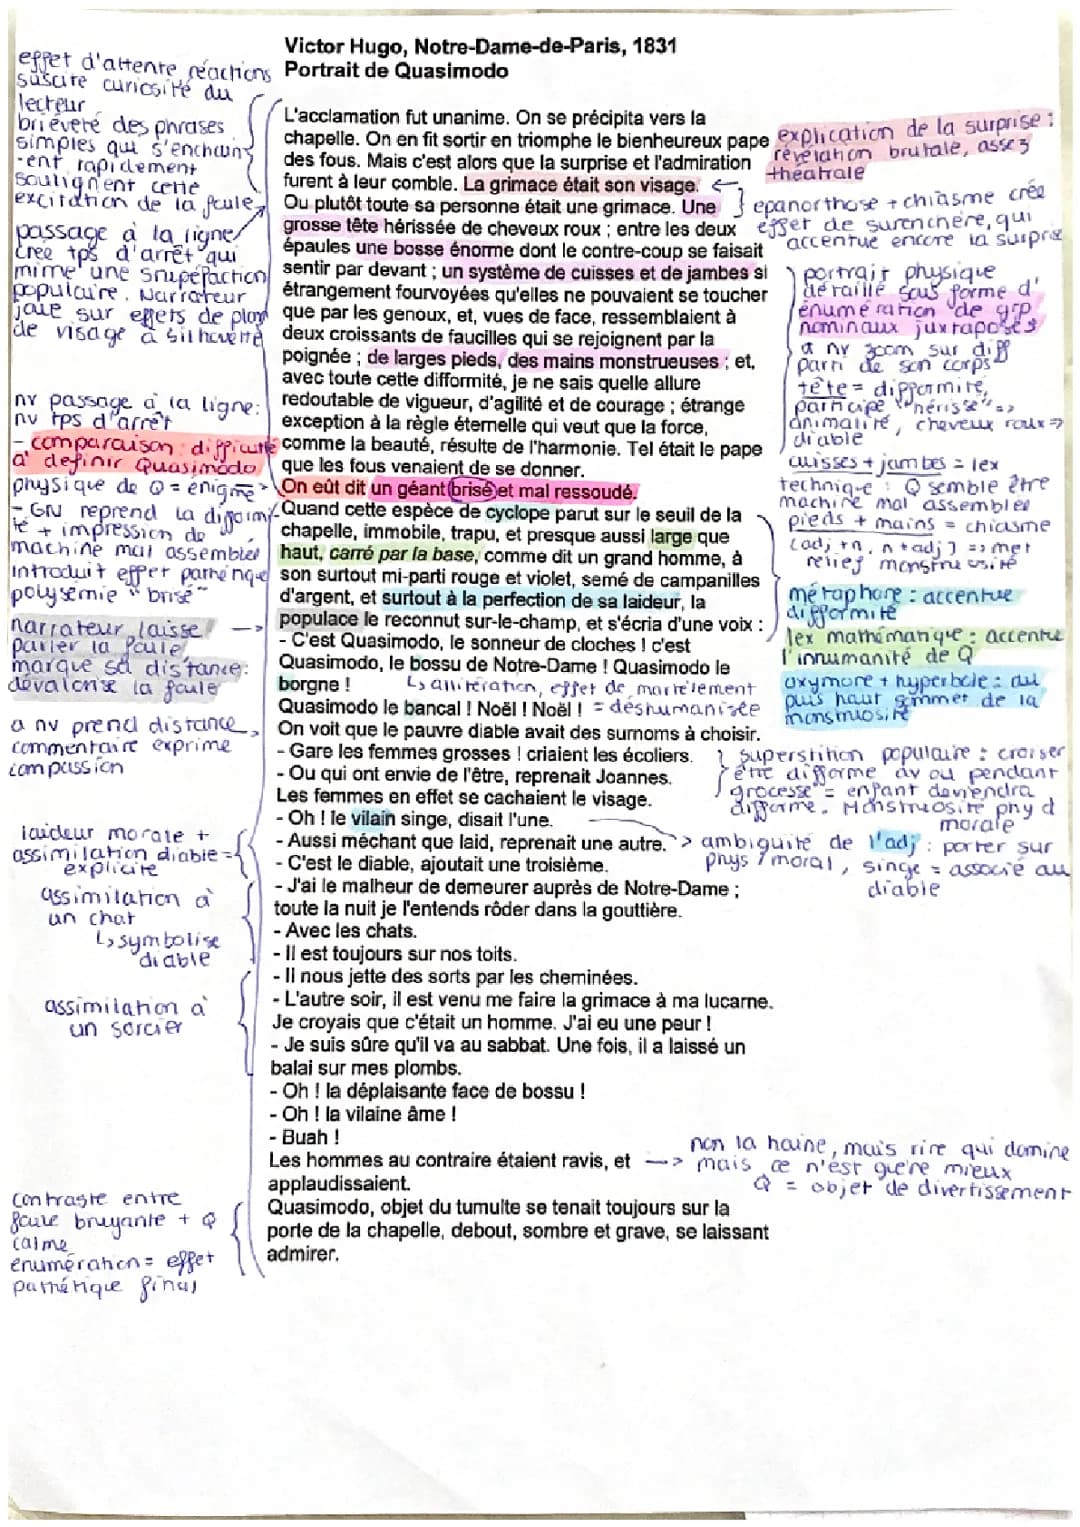 Victor Hugo, Notre-Dame-de-Paris, 1831
Portrait de Quasimodo
L'acclamation fut unanime. On se précipita vers la
chapelle. On en fit sortir en triomphe le bienheureux pape
des fous. Mais c'est alors que la surprise et l'admiration
furent à leur comble. La grimace était son visage.
Ou plutôt toute sa personne était une grimace. Une
grosse tête hérissée de cheveux roux ; entre les deux
épaules une bosse énorme dont le contre-coup se faisait
sentir par devant ; un système de cuisses et de jambes si
étrangement fourvoyées qu'elles ne pouvaient se toucher
que par les genoux, et, vues de face, ressemblaient à
deux croissants de faucilles qui se rejoignent par la
poignée ; de larges pieds, des mains monstrueuses ; et,
avec toute cette difformité, je ne sais quelle allure
redoutable de vigueur, d'agilité et de courage ; étrange
exception à la règle éternelle qui veut que la force,
comme la beauté, résulte de l'harmonie. Tel était le pape
que les fous venaient de se donner.
On eût dit un géant brisé et mal ressoudé.
Quand cette espèce de cyclope parut sur le seuil de la
chapelle, immobile, trapu, et presque aussi large que
haut, carré par la base, comme dit un grand homme, à
son surtout mi-parti rouge et violet, semé de campanilles
d'argent, et surtout à la perfection de sa laideur, la
populace le reconnut sur-le-champ, et s'écria d'une voix :
- C'est Quasimodo, le sonneur de cloches ! c'est
Quasimodo, le bossu de Notre-Dame ! Quasimodo le
borgne !
Quasimodo le bancal ! Noël ! Noël !
On voit que le pauvre diable avait des surnoms à choisir.
- Gare les femmes grosses ! criaient les écoliers.
- Ou qui ont envie de l'être, reprenait Joannes.
Les femmes en effet se cachaient le visage.
- Oh ! le vilain singe, disait l'une.
- Aussi méchant que laid, reprenait une autre.
- C'est le diable, ajoutait une troisième.
- J'ai le malheur de demeurer auprès de Notre-Dame ;
toute la nuit je l'entends rôder dans la gouttière.
- Avec les chats.
- Il est toujours sur nos toits.
- Il nous jette des sorts par les cheminées.
- L'autre soir, il est venu me faire la grimace à ma lucarne.
Je croyais que c'était un homme. J'ai eu une peur !
- Je suis sûre qu'il va au sabbat. Une fois, il a laissé un
balai sur mes plombs.
- Oh ! la déplaisante face de bossu !
- Oh ! la vilaine âme !
- Buah !
Les hommes au contraire étaient ravis, et
applaudissaient.
Quasimodo, objet du tumulte se tenait toujours sur la
porte de la chapelle, debout, sombre et grave, se laissant
admirer.
effet d'attente réactions
suscite curiosité du
lecteur
brièveté des phrases
simples qui s'enchain
-ent rapidement
soulignent cette
excitation de la foule
passage à la ligne
cree tps d'arrêt qui
mime une stupéfaction
populaire. Narrateur
joue sur effets de
de visage à silhouette
nv passage à la ligne:
nv tps d'arrêt
- comparaison : difficulté
à définir Quasimodo
physique de Q = enigme
- GN reprend la difformi-
té + impression de
machine mal assemblée
introduit effet pathétique
polysémie "brisé"
narrateur laisse
parler la foule
marque sa distance:
dévalorise la foule
a nv prend distance,
commentaire exprime
compassion
laideur morale +
assimilation diable =
explicite
assimilation à
un chat
↳ symbolise
diable
assimilation à
un sorcier
contraste entre
foule bruyante + Q
calme
énumération = effet
pathétique final
explication de la surprise :
révélation brutale, assez
théatrale
epanorthose + chiasme crée
effet de surenchère, qui
accentue encore la surprise
portrait physique
détaillé sous forme d'
énumération de grp
nominaux juxtaposés
a nv zoom sur diff
parti de son corps
tête = difformité,
participe "hérissé" =>
animalité, cheveux roux =>
diable
cuisses + jambes = lex
technique : Q semble être
machine mal assemblée
pieds + mains = chiasme
(adj + n, n + adj) => met
relief monstruosité
métaphore : accentue
difformité
lex mathématique : accentue
l'innumanité de Q
oxymore + hyperbole : au
plus haut sommet de la
monstruosité
↳ allitération, effet de martèlement
= déshumanisée
superstition populaire : croiser
être difforme av ou pendant
grocesse = enfant deviendra
difforme. Monstruosité phy d
morale
-> ambiguité de l'adj : porter sur
phys / moral, singe = associé au
diable
non la haine, mais rire qui domine
-> mais ce n'est guère mieux
Q = objet de divertissement